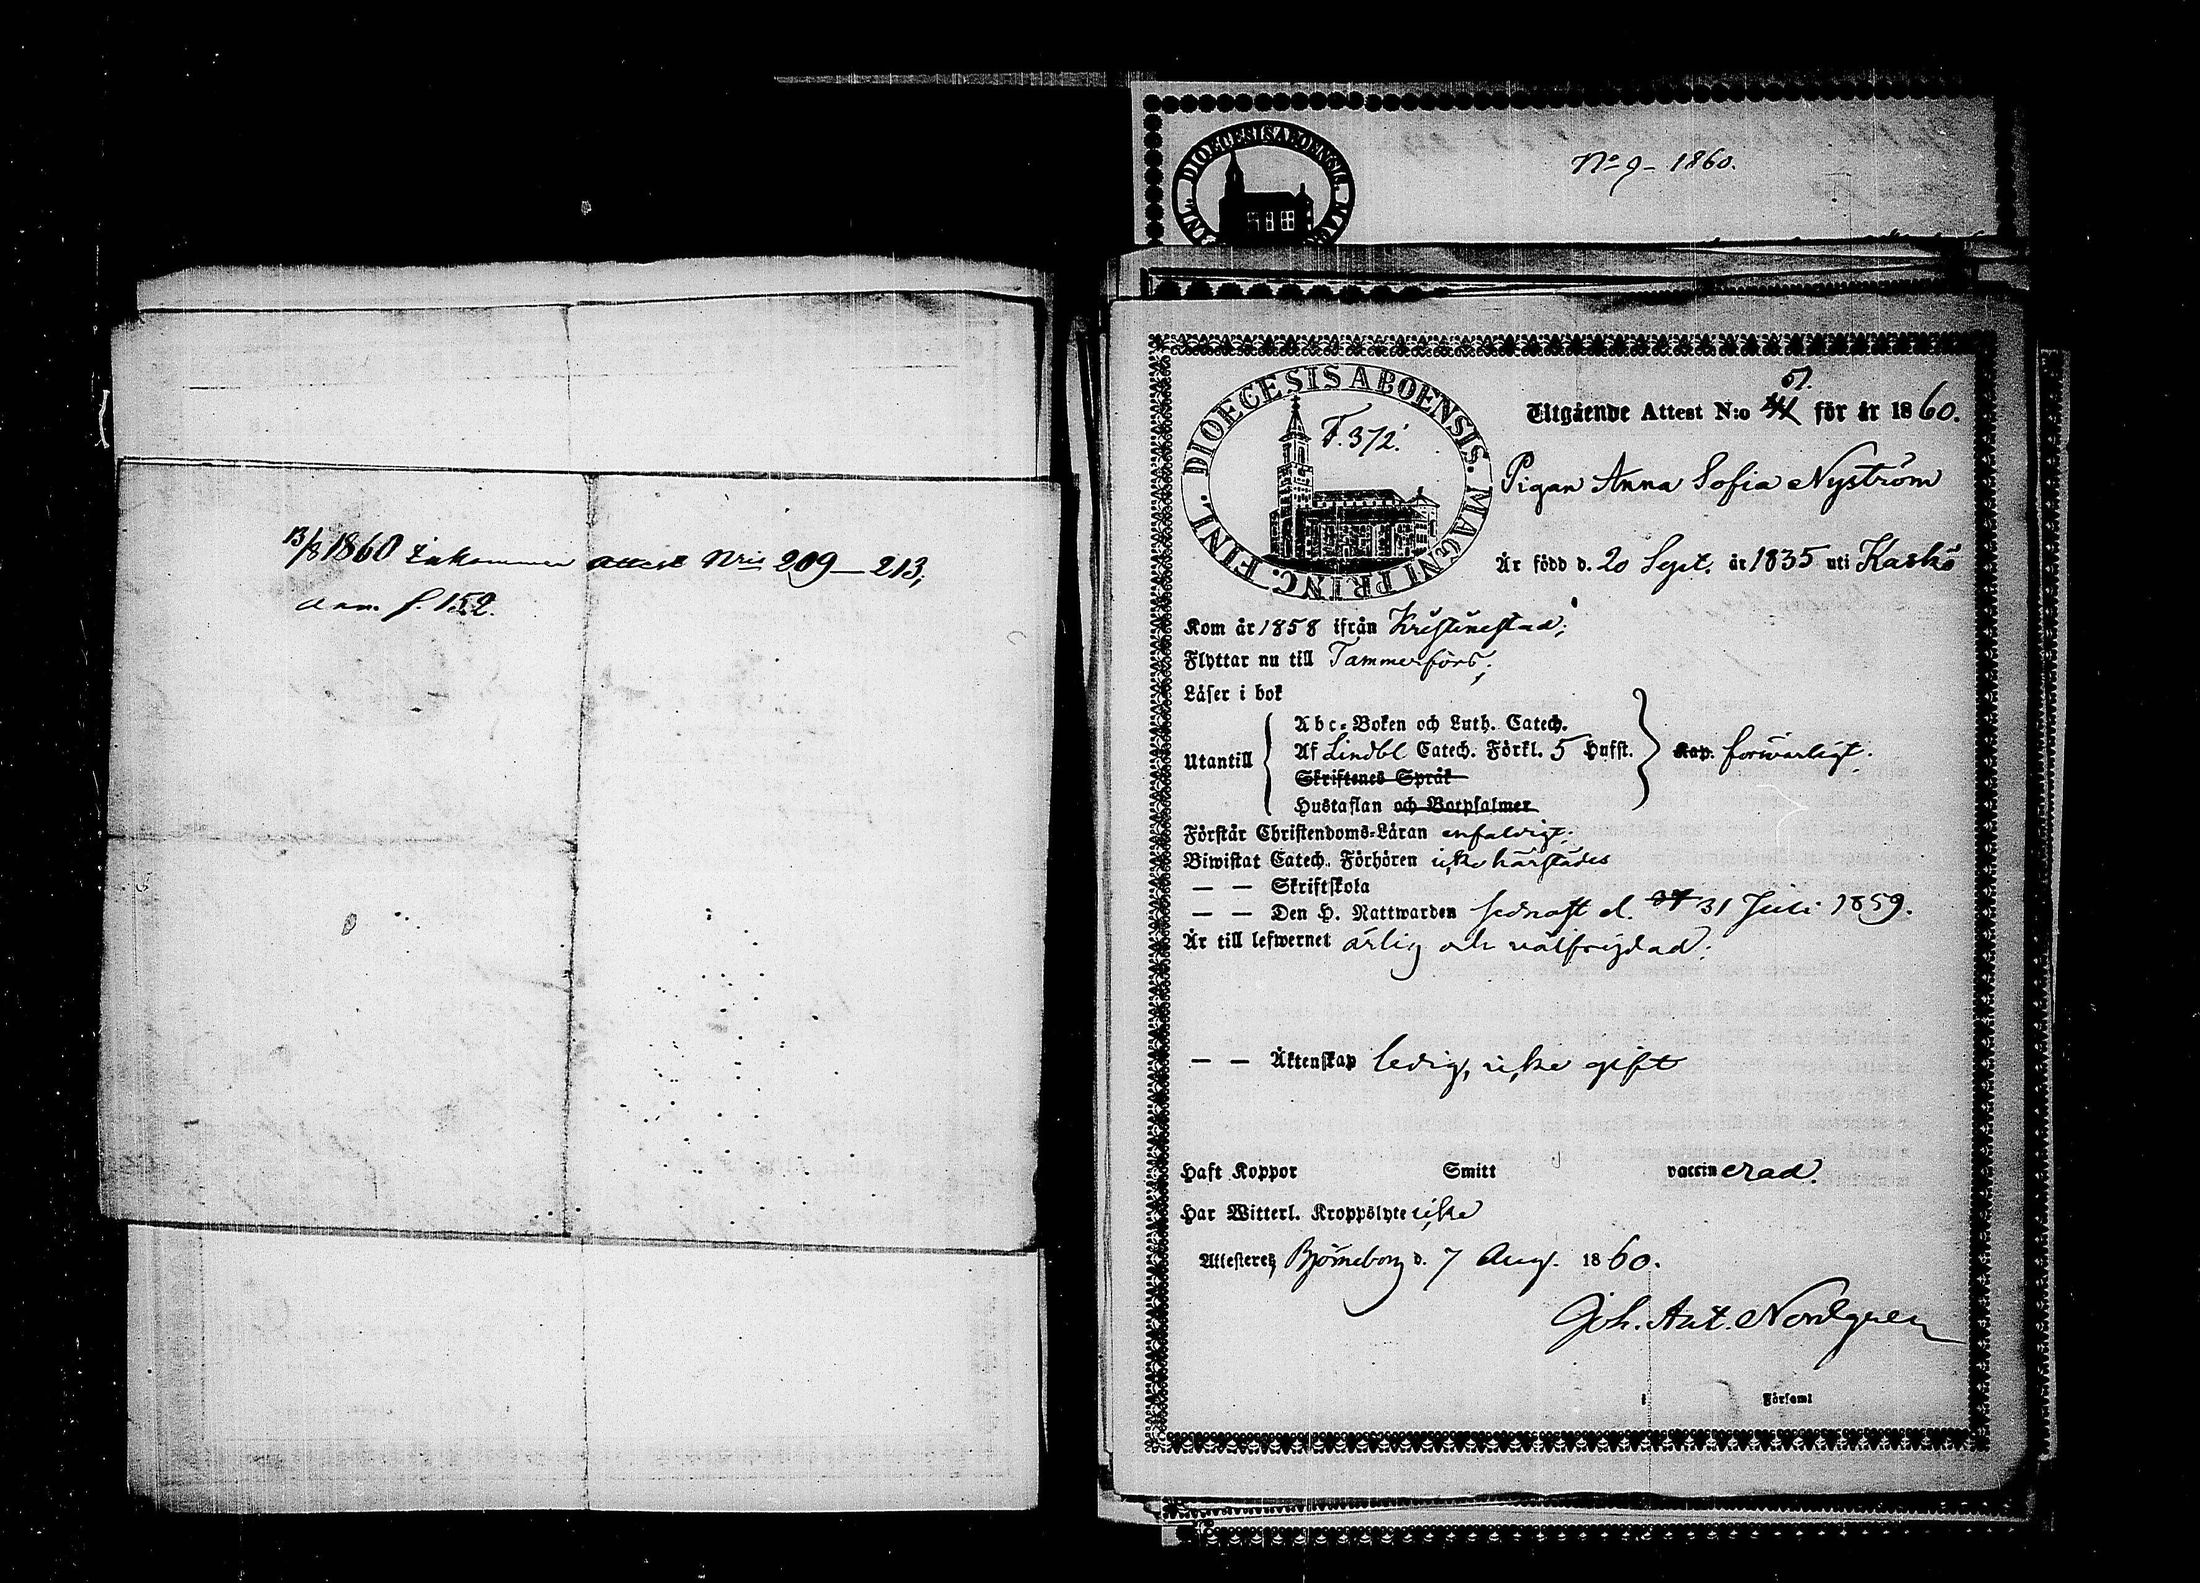 13/8 1860 Inkomne attest Nris 209 — 213,
anm. f. 152.
DIOECESIS ABOENSIS. MAG
INL.
No 9 – 1860.
DIOECESIS ABOENSIS. MAGNI PRINC. FINL.
F. 372.
51.
Utgående Attest N:o för år 1860.
Pigan Anna Sofia Nyström
Är född d. 20 Sept. år 1835 uti Kaskö
Kom år 1858 ifrån Kristinestad;
Flyttar nu till Tammerfors;
Läser i bok
Abc-Boken och Luth. Catech.
Utantill Af Lindbl Catech. Förkl. 5 Hufst. Kap. försvarligt.
Skriftenes Språk
Hustaflan och Botpsalmer
Förstår Christendoms-Läran enfaldigt.
Biwistat Catech. Förhören icke härstädes
— — Skriftskola
— — Den H. Nattwarden sednast d. 31 Juli 1859.
Är till lefwernet ärlig och välfrejdad.
— — Äktenskap ledig, icke gift
Haft Koppor Smitt vaccinerad.
Har Witterl. Kroppslyte icke
Attesterer, Björneborg d. 7 Aug. 1860.
Joh. Ant. Nordgren
i Församl